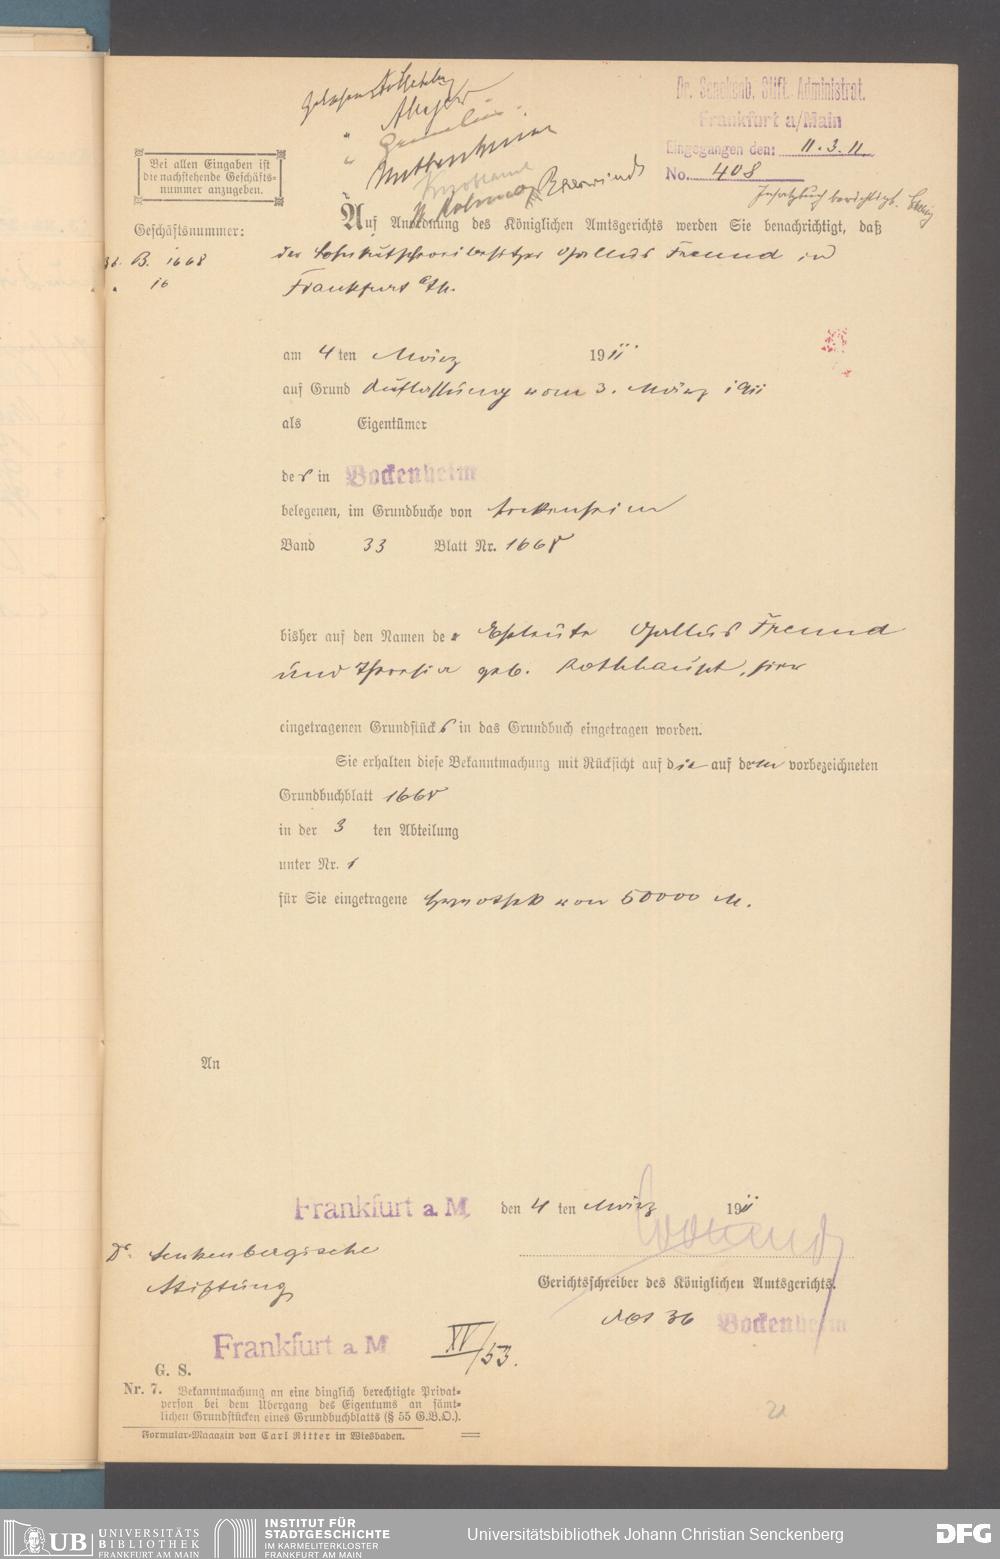 gelesen
Dr. Senckenb. Stift. Administrat.
Frankfurt a/Main
Eingegangen den: 11.3.11.
No. 408
berichtigt.
Bei allen Eingaben ist
die nachstehende Geschäfts-
nummer anzugeben.
Geschäftsnummer:
36. B. 1668
16
Auf Anordnung des Königlichen Amtsgerichts werden Sie benachrichtigt, daß
der Lohnkutschereibesitzer Gallus Freund in
Frankfurt a/M.
am 4 ten März 1911
auf Grund Auflassung vom 3. März 1911
als Eigentümer
des in Bockenheim
belegenen, im Grundbuche von Bockenheim
Band 33 Blatt Nr. 1668
bisher auf den Namen der Eheleute Gallus Freund
und Theresia geb. Rothhaupt, hier
eingetragenen Grundstücks in das Grundbuch eingetragen worden.
Sie erhalten diese Bekanntmachung mit Rücksicht auf die auf dem vorbezeichneten
Grundbuchblatt 1668
in der 3 ten Abteilung
unter Nr. 1
für Sie eingetragene Hypothek von 50000 M.
An
Frankfurt a. M. den 4 ten März 1911
Dr. Senkenbergische
Stiftung
Gerichtsschreiber des Königlichen Amtsgerichts.
36 Bockenheim
Frankfurt a. M.
XV/53.
G. S.
Nr. 7. Bekanntmachung an eine dinglich berechtigte Privat-
person bei dem Übergang des Eigentums an sämt-
lichen Grundstücken eines Grundbuchblatts (§ 55 G.B.O.).
Formular-Magazin von Carl Ritter in Wiesbaden.
21
UB UNIVERSITÄTS
BIBLIOTHEK
FRANKFURT AM MAIN
INSTITUT FÜR
STADTGESCHICHTE
IM KARMELITERKLOSTER
FRANKFURT AM MAIN
Universitätsbibliothek Johann Christian Senckenberg
DFG